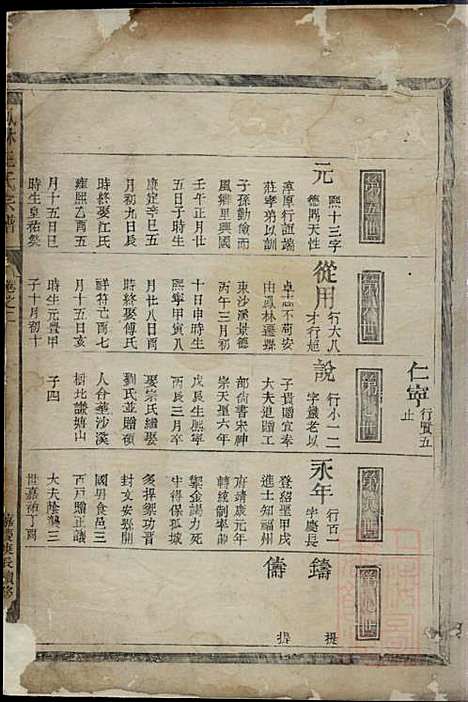 仁寧
行賢五
止
第五世
元
熙十三字
德閒天性
淳厚行誼端
莊寧弟以訓
子孫勤儉而
風鄉里興國
壬午正月廿
五日子時生
康定辛巳五
月初九日辰
時終娶江氏
雍熙乙酉五
月十五日巳
時生皇祐癸
第六世
從用
行大八
才行超
卓不苟安
由鳳林遷蝶
東沙溪景德
丙午三月初
十日申時生
熙寧甲寅八
月廿八日辰
時終娶傅氏
祥符己酉七
月十五日亥
時生元豊甲
子十月初十
第七世
說
行小一二
字鐵老以
子貴贈宜奉
大夫追贈工
部尚書宋神
宗天聖六年
戊辰生熙寧
丙辰三月卒
娶宗氏繼娶
劉氏並贈碩
人合葬沙溪
橱北讓塘山
子四
第八世
永年
行百一
字慶長
登紹聖甲戌
進士知福州
府靖康元年
轉統制率師
禦金竭力死
牛得保孤城
多捍禦功晋
封文安縣開
國男食邑三
百戶贈正議
大夫隆襲三
世嘉祐丁酉
第九世
鑄
提
儔
提
氏宗譜
卷之二